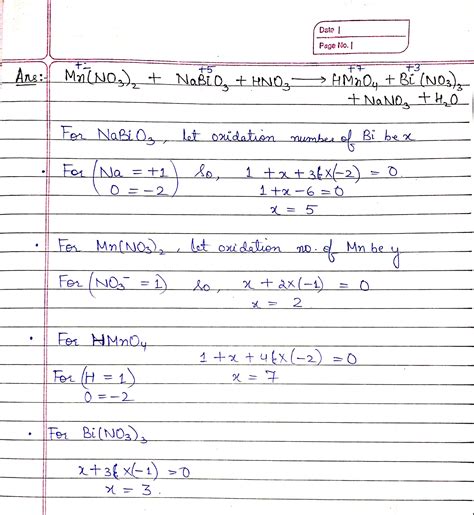 Date
Page No.
+2 +5 +7 +3
Ans:- Mn(NO₃)₂ + NaBiO₃ + HNO₃ ⟶ HMnO₄ + Bi(NO₃)₃
+ NaNO₃ + H₂O
For NaBiO₃, let oxidation number of Bi be x
• For (Na = +1 So, 1 + x + 3(x(-2) = 0
O = -2) 1 + x - 6 = 0
x = 5
• For Mn(NO₃)₂, let oxidation no. of Mn be y
For (NO₃⁻ = 1) so, x + 2x(-1) = 0
x = 2
• For HMnO₄
1 + x + 4(x(-2) = 0
For (H = 1) x = 7
O = -2
• For Bi(NO₃)₃
x + 3(x(-1) = 0
x = 3.